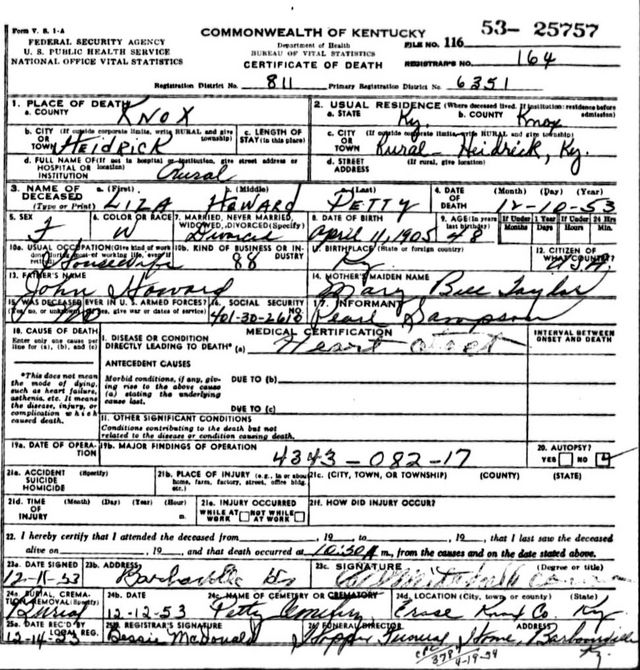 Form V. S. 1-A
FEDERAL SECURITY AGENCY
U. S. PUBLIC HEALTH SERVICE
NATIONAL OFFICE VITAL STATISTICS
COMMONWEALTH OF KENTUCKY
Department of Health
BUREAU OF VITAL STATISTICS
CERTIFICATE OF DEATH
53-25757
FILE NO. 116
REGISTRAR'S NO. 164
Registration District No. 811 Primary Registration District No. 6351
1. PLACE OF DEATH
a. COUNTY KNOX
2. USUAL RESIDENCE (Where deceased lived. If institution: residence before admission)
a. STATE Ky. b. COUNTY Knox
b. CITY (If outside corporate limits, write RURAL and give township) OR TOWN Heidrick
c. LENGTH OF STAY (in this place)
c. CITY (If outside corporate limits, write RURAL and give township) OR TOWN Rural - Heidrick, Ky.
d. FULL NAME OF (If not in hospital or institution, give street address or location) HOSPITAL OR INSTITUTION Rural
d. STREET ADDRESS (If rural, give location)
3. NAME OF DECEASED (Type or Print) a. (First) LIZA b. (Middle) HOWARD c. (Last) PETTY
4. DATE OF DEATH (Month) (Day) (Year) 12-10-53
5. SEX F
6. COLOR OR RACE W
7. MARRIED, NEVER MARRIED, WIDOWED, DIVORCED (Specify) Divorced
8. DATE OF BIRTH April 11, 1905
9. AGE (In years last birthday) 48
If Under 1 Year Months Days
If Under 24 Hrs Hours Min.
10a. USUAL OCCUPATION (Give kind of work done during most of working life, even if retired) Housewife
10b. KIND OF BUSINESS OR INDUSTRY 88
11. BIRTHPLACE (State or foreign country) Ky
12. CITIZEN OF WHAT COUNTRY? USA
13. FATHER'S NAME John Howard
14. MOTHER'S MAIDEN NAME Mary Bell Taylor
15. WAS DECEASED EVER IN U. S. ARMED FORCES? (Yes, no, or unknown) (If yes, give war or dates of service) No
16. SOCIAL SECURITY NO. 401-30-2618
17. INFORMANT Pearl Sampson
18. CAUSE OF DEATH
Enter only one cause per line for (a), (b), and (c)
*This does not mean the mode of dying, such as heart failure, asthenia, etc. It means the disease, injury, or complication which caused death.
MEDICAL CERTIFICATION
INTERVAL BETWEEN ONSET AND DEATH
I. DISEASE OR CONDITION DIRECTLY LEADING TO DEATH* (a) Heart
ANTECEDENT CAUSES
Morbid conditions, if any, giving rise to the above cause (a) stating the underlying cause last.
DUE TO (b)
DUE TO (c)
II. OTHER SIGNIFICANT CONDITIONS
Conditions contributing to the death but not related to the disease or condition causing death.
19a. DATE OF OPERATION
19b. MAJOR FINDINGS OF OPERATION
4343-082-17
20. AUTOPSY? YES NO
21a. ACCIDENT SUICIDE HOMICIDE (Specify)
21b. PLACE OF INJURY (e.g., in or about home, farm, factory, street, office bldg. etc.)
21c. (CITY, TOWN, OR TOWNSHIP) (COUNTY) (STATE)
21d. TIME OF INJURY (Month) (Day) (Year) (Hour) m.
21e. INJURY OCCURRED WHILE AT WORK NOT WHILE AT WORK
21f. HOW DID INJURY OCCUR?
22. I hereby certify that I attended the deceased from , 19 to , 19 , that I last saw the deceased
alive on , 19 , and that death occurred at 10:30 A m., from the causes and on the date stated above.
23a. DATE SIGNED 12-11-53
23b. ADDRESS Barbourville Ky
23c. SIGNATURE (Degree or title)
24a. BURIAL, CREMATION, REMOVAL (Specify) Burial
24b. DATE 12-12-53
24c. NAME OF CEMETERY OR CREMATORY Petty Cemetery
24d. LOCATION (City, town, or county) (State) Knox Co. Ky
25a. REC'D BY LOCAL REG. 12-14-53
25b. REGISTRAR'S SIGNATURE Bessie McDonald
26. FUNERAL DIRECTOR ADDRESS Hopper Funeral Home, Barbourville Ky.